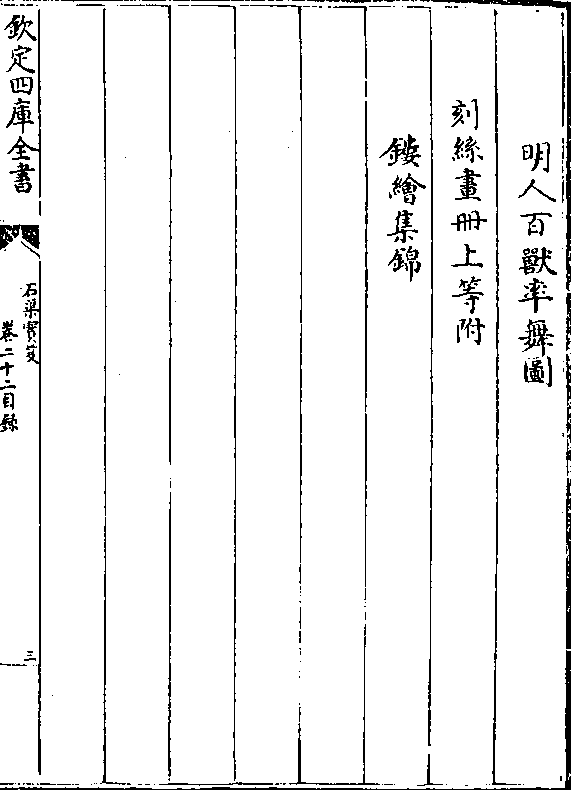 明人百獸率舞圖
刻絲畫冊上等附
鏤繪集錦
欽定四庫全書
石渠寳笈
卷二十二目錄
三